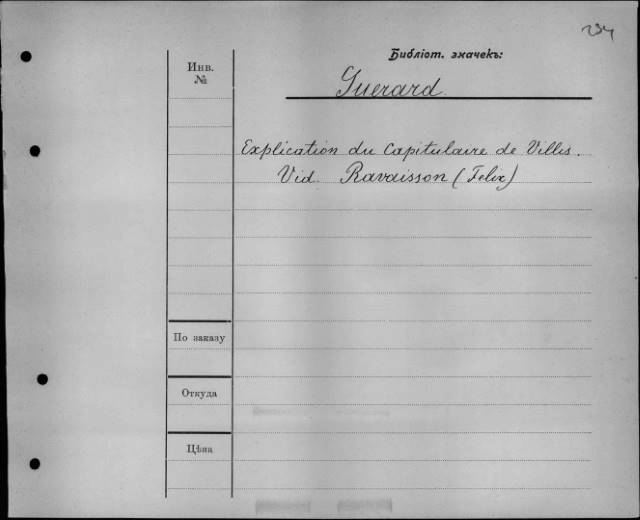 234
Библіот. значекъ:
Инв.
№
Guerard.
Explication du Capitulaire de Villis.
Vid. Ravaisson (Felix)
По заказу
Откуда
Цѣна